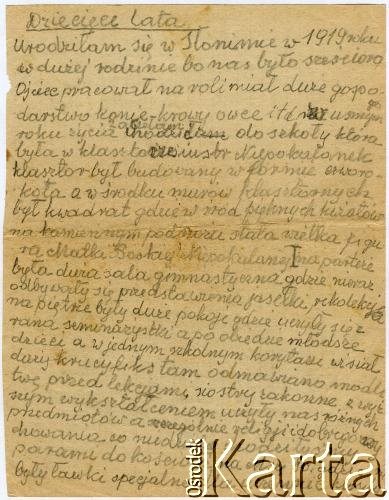 Dziecięce lata
Urodziłam się w Słonimie w 1919 roku
w dużej rodzinie bo nas było sześcioro
Ojciec pracował na roli miał duże gospo-
darstwo konie krowy owce itd w usmym
roku życia do szkoły która
była w klasztorze siustr Niepokalanek
klasztor był budowany w formie czworo-
kąta a w środku murów klasztornych
był kwadrat gdzie wśród pięknych kwiatów
na kamiennym podmurzu stała wielka figu-
ra Matka Boskiej Niepokalanej na parterze
była duża sala gimnastyczna gdzie nieraz
odbywały się przedstawienia jasełka, rekolekcje
na piętrze były duże pokoje gdzie uczyły się z
rana seminarzystki a po obiedzie młodsze
dzieci a w jednym szkolnym korytarzu wisiał
duży krucyfiks tam odmawiano modli
twę przed lekcjami, siostry zakonne z wyż
szym wykształceniem uczyły nas różnych
przedmiotów a szczególnie religji i dobrego
chowania co niedziela
parami do kościoła
były ławki specjalne
Ośrodek Karta